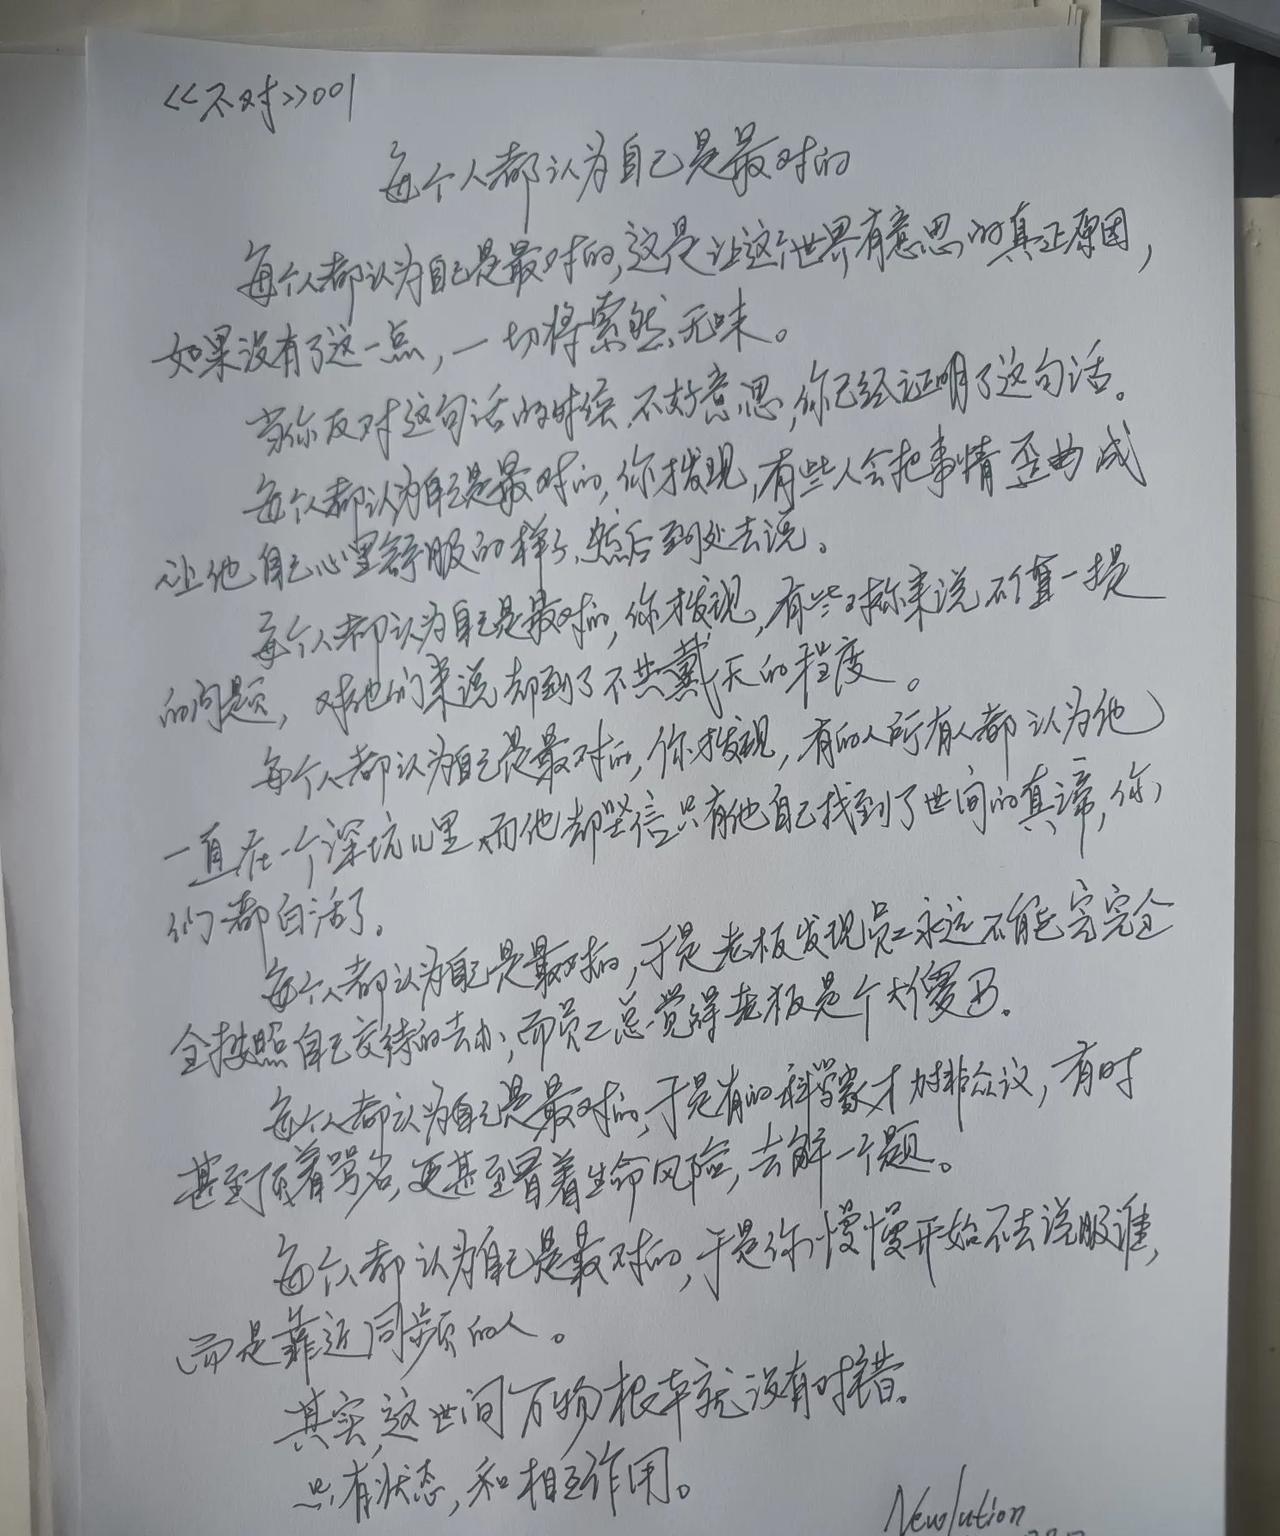 <<不对>>001
每个人都认为自己是最对的
每个人都认为自己是最对的，这是让这个世界有意思的真正原因，
如果没有了这一点，一切将索然无味。
当你反对这句话的时候，不好意思，你已经证明了这句话。
每个人都认为自己是最对的，你才发现，有些人会把事情歪曲成
让他自己心里舒服的样子，然后到处去说。
每个人都认为自己是最对的，你才发现，有些对你来说不值一提
的问题，对他们来说却到了不共戴天的程度。
每个人都认为自己是最对的，你才发现，有的人所有人都认为他
一直在一个深坑儿里，而他却坚信只有他自己找到了世间的真谛，你
们都白活了。
每个人都认为自己是最对的，于是老板发现员工永远不能完完全
全按照自己交待的去办，而员工总觉得老板是个大傻B。
每个人都认为自己是最对的，于是有的科学家才力排众议，有时
甚至顶着骂名，更甚至冒着生命风险，去解一个题。
每个人都认为自己是最对的，于是你慢慢开始不去说服谁，
而是靠近同频的人。
其实，这世间万物根本就没有对错。
只有状态，和相互作用。
Newlution